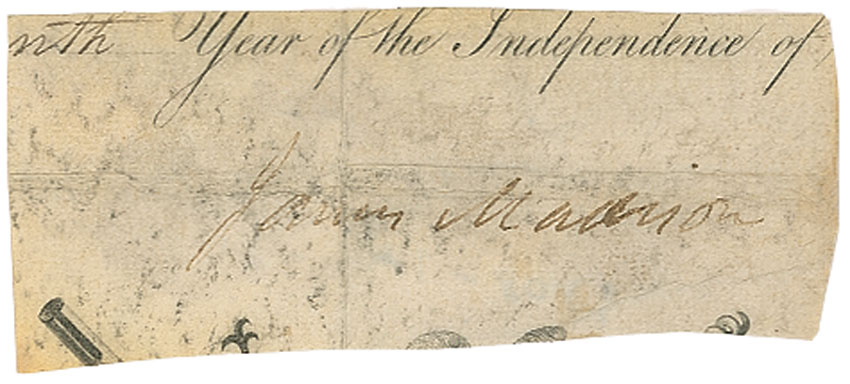 nth Year of the Independence of
James Madison